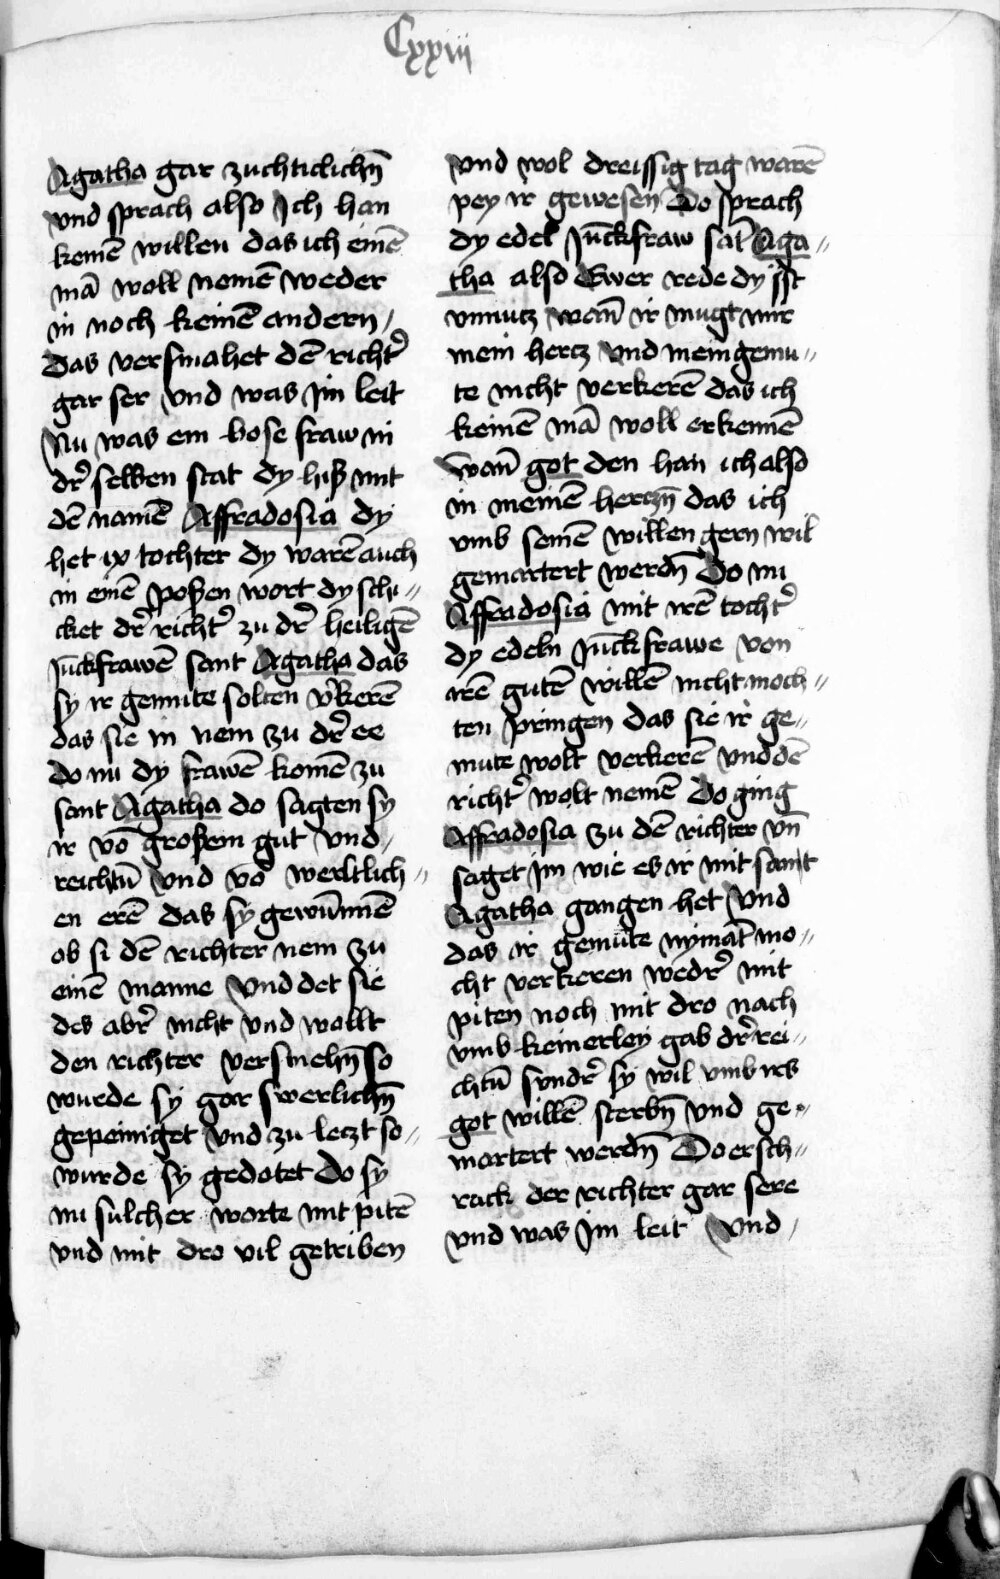 Cxxiii
Agatha gar zuchticlichn̄
vnd sprach also Ich han
keinē willen das ich einē
mā woll nemē weder
in noch keinē andern /
das versmahet dē richt᷑
gar ser vnd was Im leit
Nu was ein bose fraw in
dr᷑ selben stat dy hiß mit
dē namē Affradosia dy
het ix tochter dy warē auch
in einē poßen wort dy schi„
cket dr᷑ richt᷑ zu dr᷑ heiligē
Iūckfrawē sant Agatha das
sy ir gemute solten v᷑kerē
das sie in nem zu dr᷑ ee
do nu dy frawē komē zu
sant Agatha do sagten sy
ir vō großem gut vnd /
reichtū vnd vō werltlich„
en erē das sy gewūnnē
ob si dē richter nem zu
einē manne Vnd det sie
des abr᷑ nicht vnd wollt
den richter versmehn̄ so
wurde sy gar swerlichn̄
gepeiniget vnd zu leczt so„
wurde sy gedotet Do sy
nu sulcher worte mit pitē
vnd mit dro vil getriben
vnd wol dreissig tag warē
pey ir gewesen Do sprach
dy edel Iūckfraw sāt Aga„
tha also Ewer rede dy ist
vnnucz wan̄ ir mugt mir
mein hercz vnd mein gemu„
te nicht verkerē das ich
keinē mā woll erkennē
wan̄ got den han ich also
in meinē herczn̄ das ich
vmb seinē willen gern wil
gemartert werdn̄ Do nu
Affradosia mit irē tocht᷑
dy edeln Iūckfrawe von
irē gutē willē nicht moch„
ten pringen das sie ir ge„
mute wolt verkerē vnd dē
richt᷑ wolt nemē Do ging
Affradosia zu dē richter vn̄
saget im wie es ir mit sant
Agatha gangen het Vnd
das ir gemute nymāt mo„
cht verkeren wedr᷑ mit
piten noch mit dro nach
vmb keinerley gab dr᷑ rei„
chtū sundr᷑ sy wil vmb irs
got willē sterbn̄ vnd ge„
martert werdn̄ Do ersch„
rack der richter gar sere
vnd was Im leit Vnd /